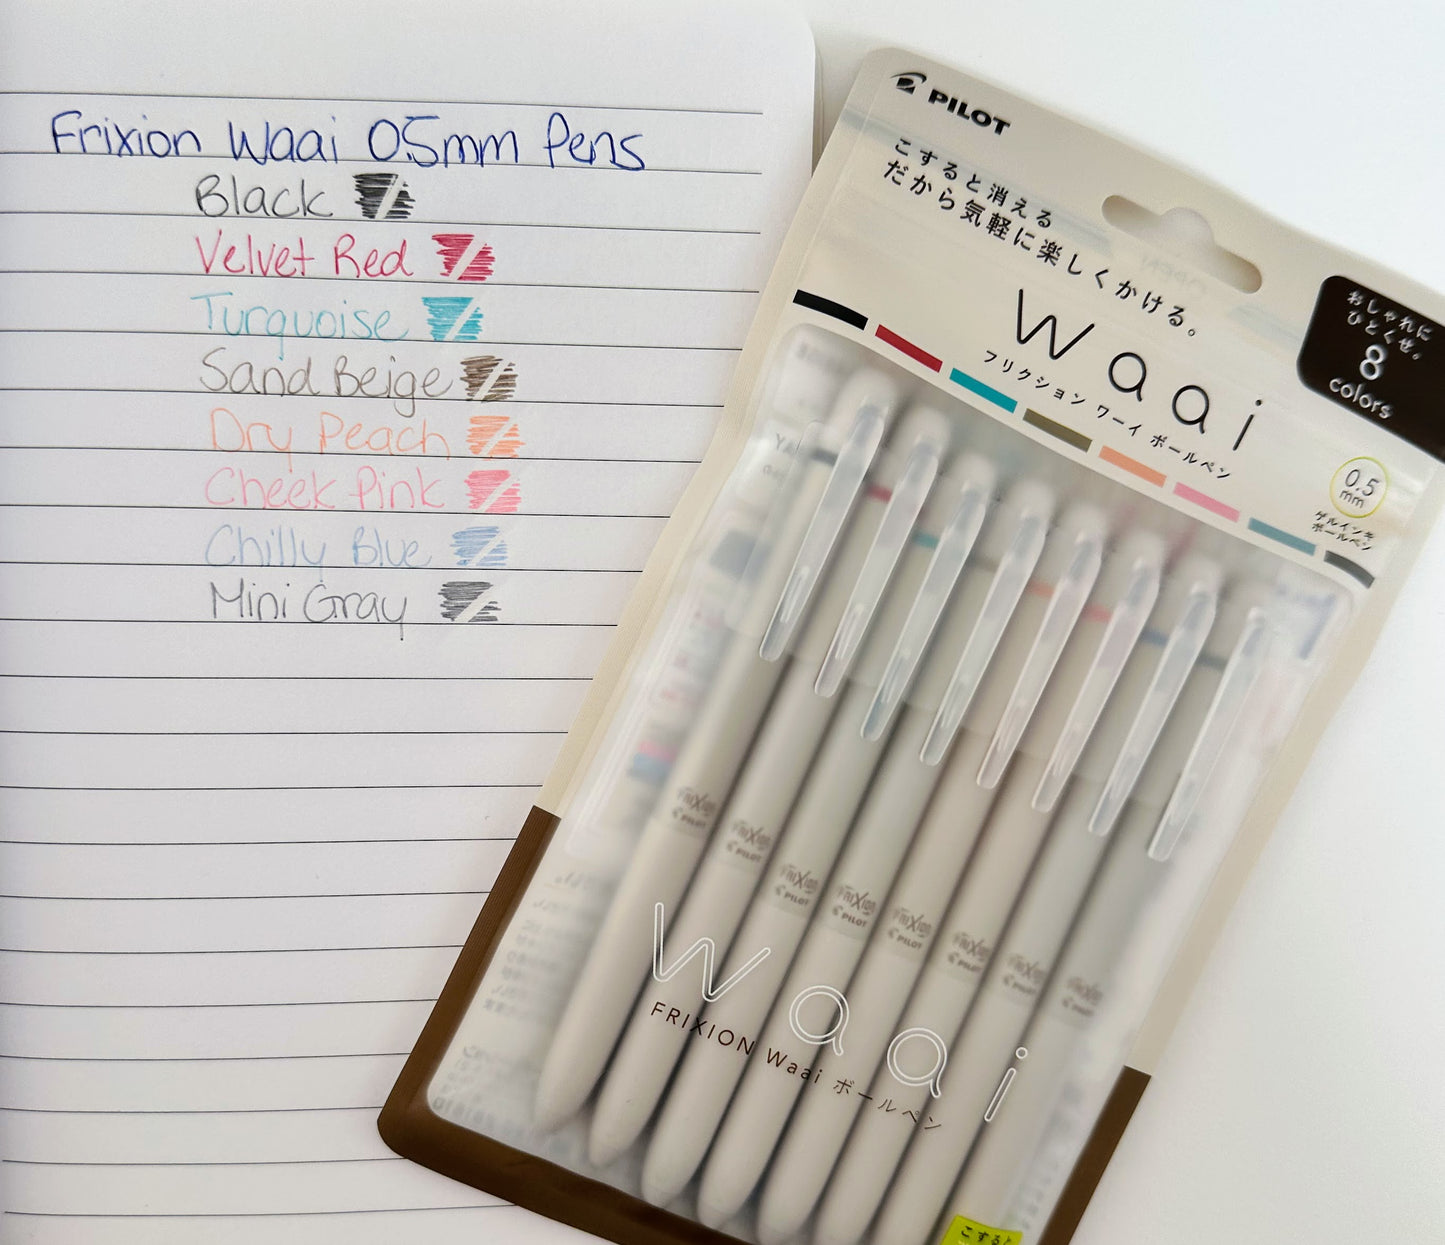 Frixion Waai 0.5mm Pens
Black
Velvet Red
Turquoise
Sand Beige
Dry Peach
Cheek Pink
Chilly Blue
Mini Gray
PILOT
こすると消える
だから気軽に楽しくかける。
waai
フリクション ワーイ ボールペン
おしゃれに
ひとくせ。
8
colors
0.5
mm
ゲルインキ
ボールペン
FRIXION
PILOT
FRIXION
PILOT
FRIXION
PILOT
FRIXION
PILOT
FRIXION
PILOT
FRIXION
PILOT
FRIXION
PILOT
FRIXION
PILOT
waai
FRIXION Waai ボールペン
こすると